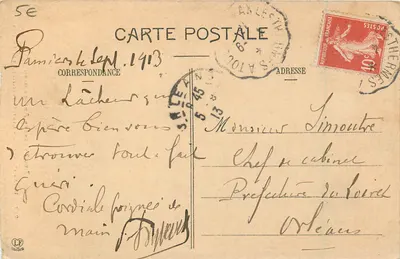 5E
CARTE POSTALE
Pamiers le Sept. 1913
CORRESPONDANCE
ADRESSE
un lâcheur qui
espère bien vous
retrouver tout à fait
guéri
Cordiale poignée de
main
Monsieur Limoutre
Chef de cabinet
Préfecture du Loiret
Orléans
ORLEANS
8-45
5
13
10